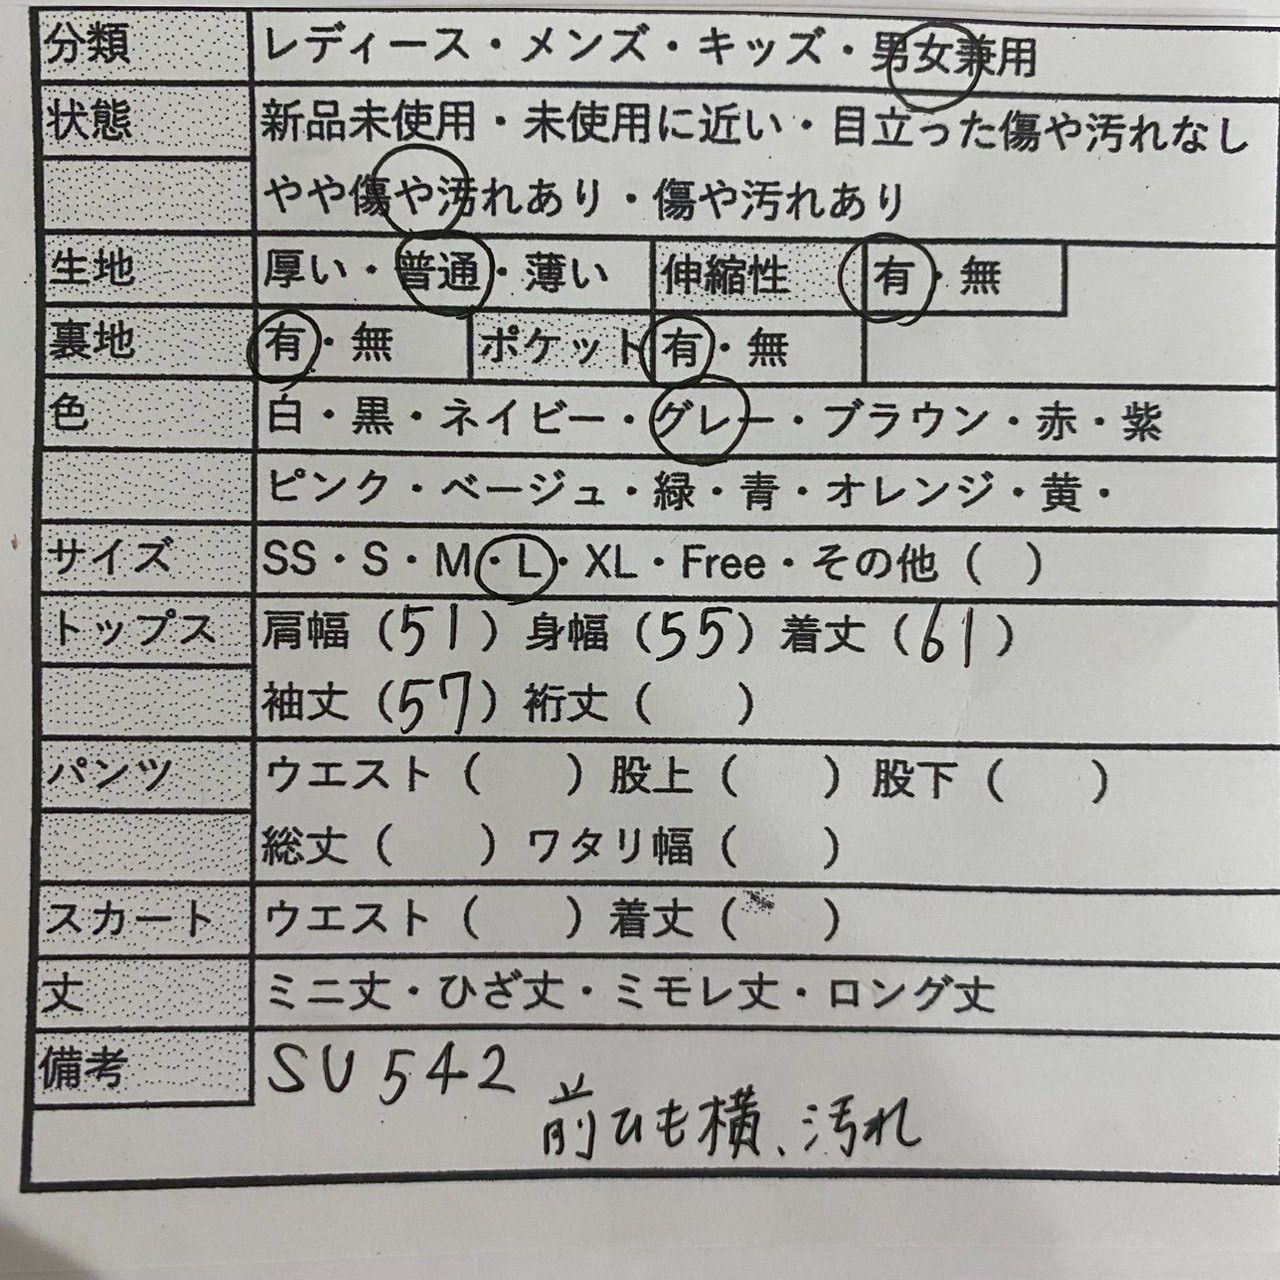 分類 レディース・メンズ・キッズ・男女兼用
状態 新品未使用・未使用に近い・目立った傷や汚れなし
やや傷や汚れあり・傷や汚れあり
生地 厚い・普通・薄い 伸縮性 有・無
裏地 有・無 ポケット 有・無
色 白・黒・ネイビー・グレー・ブラウン・赤・紫
ピンク・ベージュ・緑・青・オレンジ・黄・
サイズ SS・S・M・L・XL・Free・その他（ ）
トップス 肩幅（51）身幅（55）着丈（61）
袖丈（57）裄丈（ ）
パンツ ウエスト（ ）股上（ ）股下（ ）
総丈（ ）ワタリ幅（ ）
スカート ウエスト（ ）着丈（ ）
丈 ミニ丈・ひざ丈・ミモレ丈・ロング丈
備考 SU542
前ひも横、汚れ